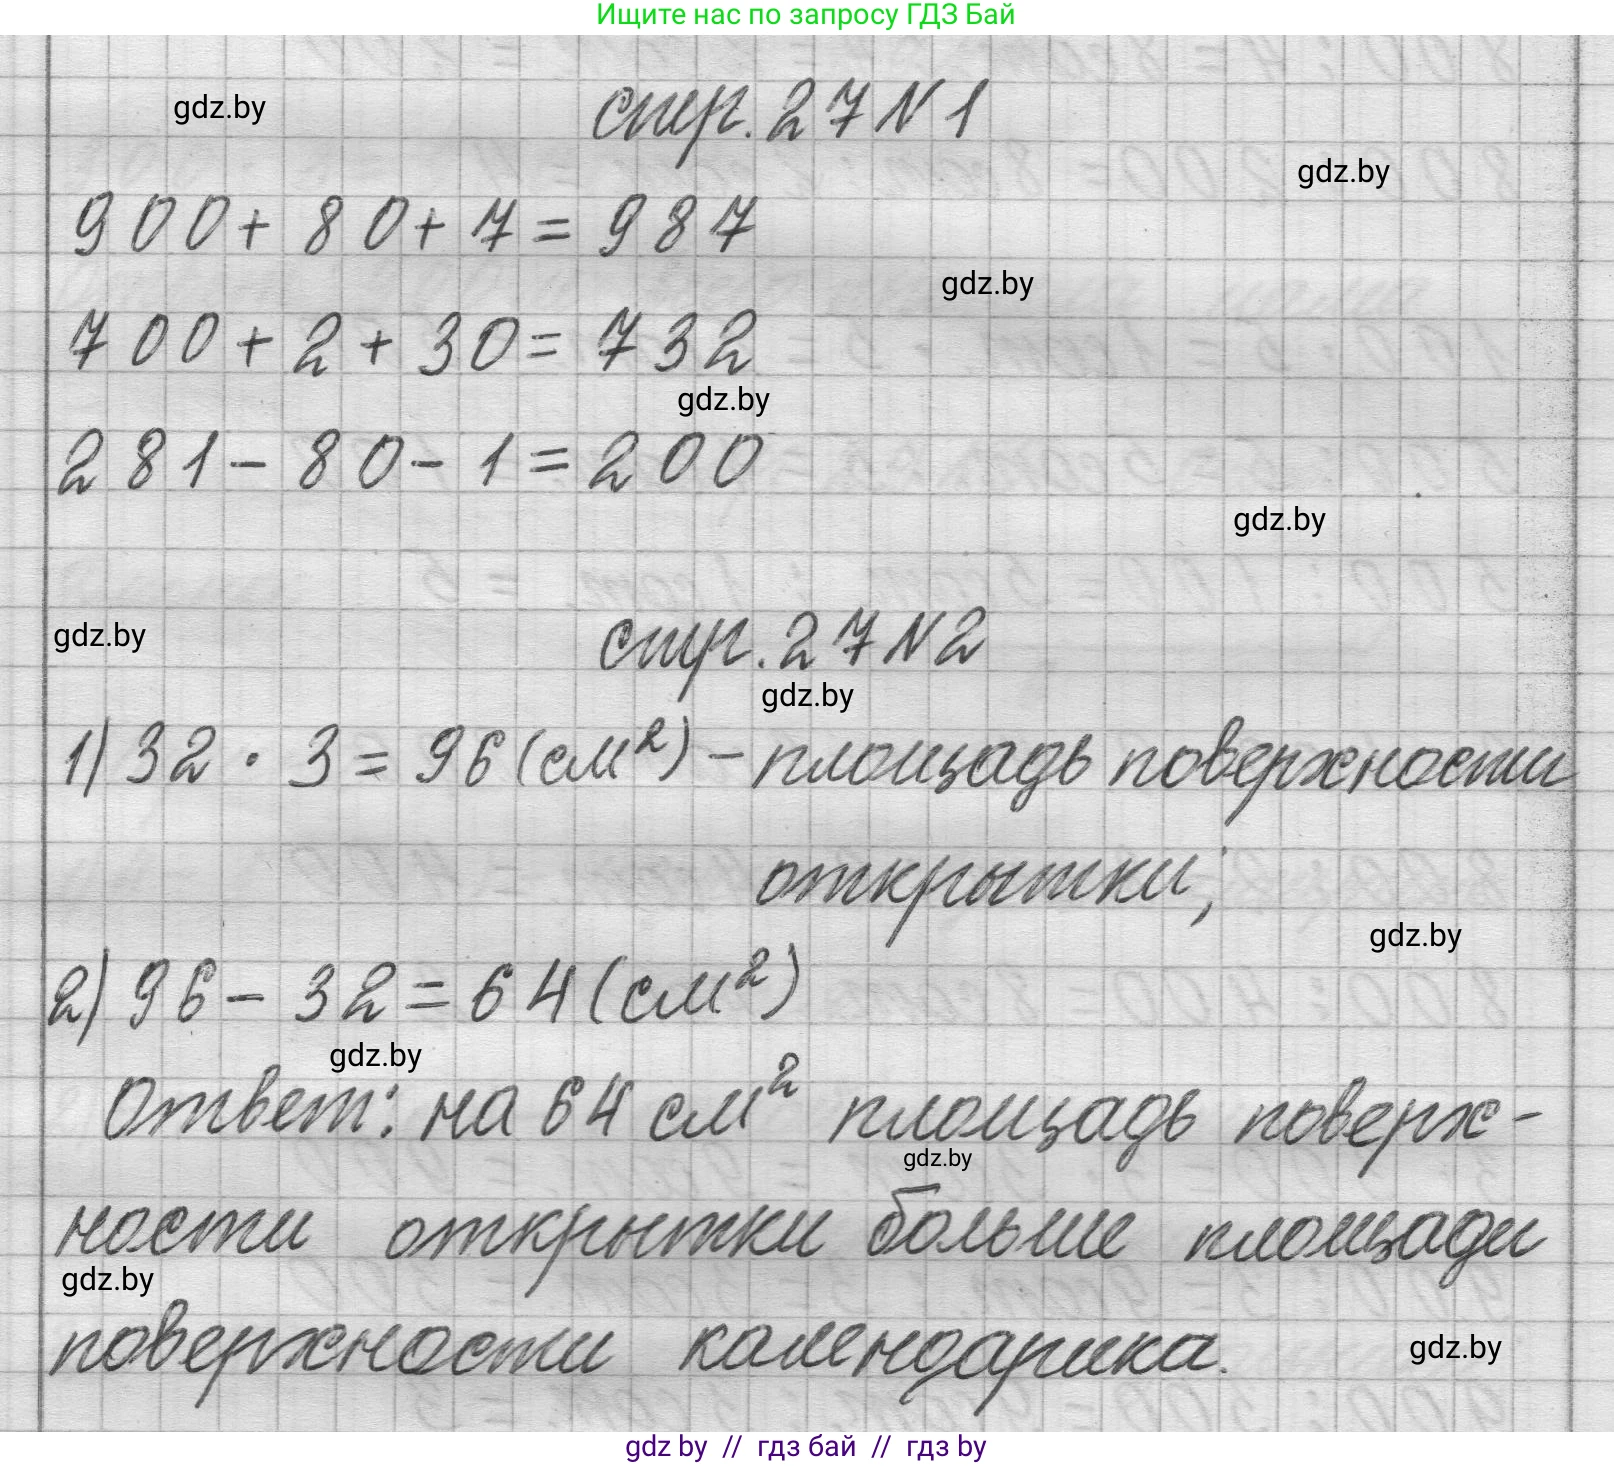 Ищите нас по запросу ГДЗ Бай
gdz.by
стр. 27 N 1
gdz.by
900 + 80 + 7 = 987
gdz.by
700 + 2 + 30 = 732
gdz.by
281 - 80 - 1 = 200
gdz.by
gdz.by
стр. 27 N 2
gdz.by
1) 32 · 3 = 96 (см²) – площадь поверхности
открытки;
gdz.by
2) 96 - 32 = 64 (см²)
gdz.by
Ответ: на 64 см² площадь поверх-
gdz.by
ности открытки больше площади
gdz.by
поверхности календарика.
gdz.by
gdz by // гдз бай // гдз by